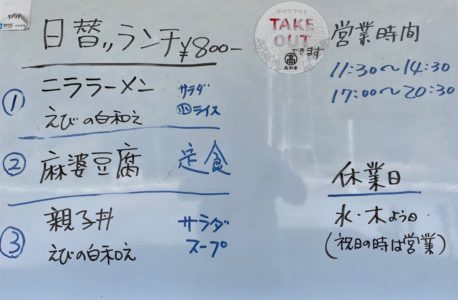 日替〃ランチ ¥800-
① ニララーメン サラダ
えびの白和え 小ライス
② 麻婆豆腐 定食
③ 親子丼 サラダ
えびの白和え スープ
TAKE
OUT
できます
営業時間
11:30〜14:30
17:00〜20:30
休業日
水・木よう日
(祝日の時は営業)